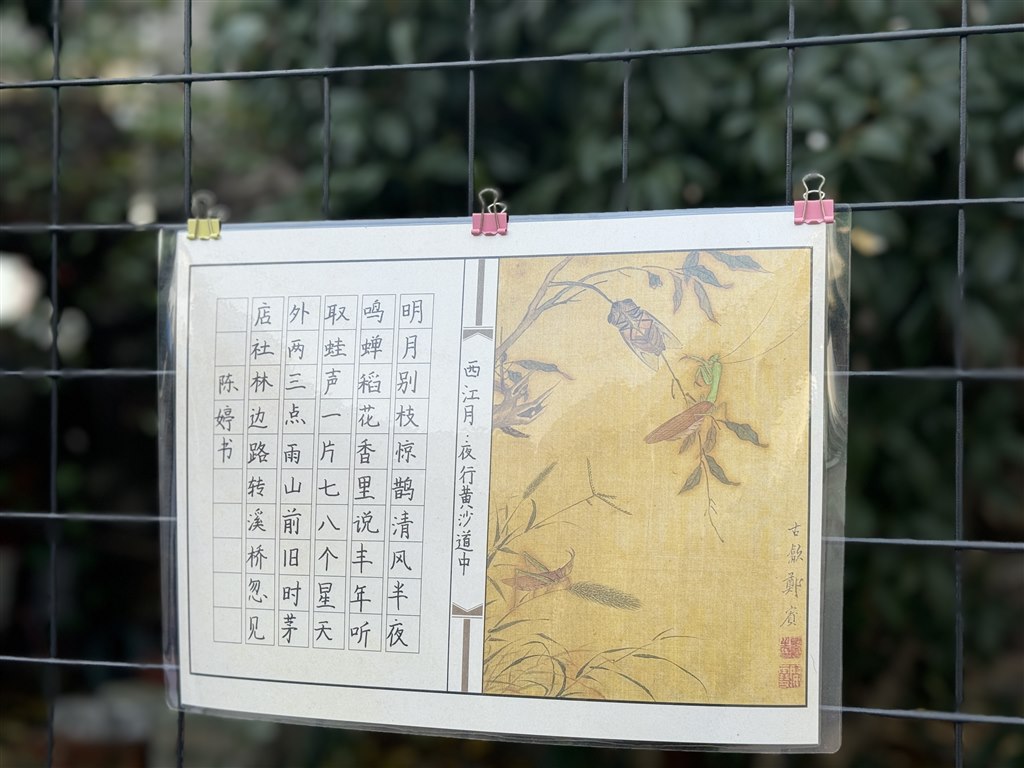 西江月：夜行黄沙道中
明月别枝惊鹊清风半夜
鸣蝉稻花香里说丰年听
取蛙声一片七八个星天
外两三点雨山前旧时茅
店社林边路转溪桥忽见
陈婷书
古歙鄭